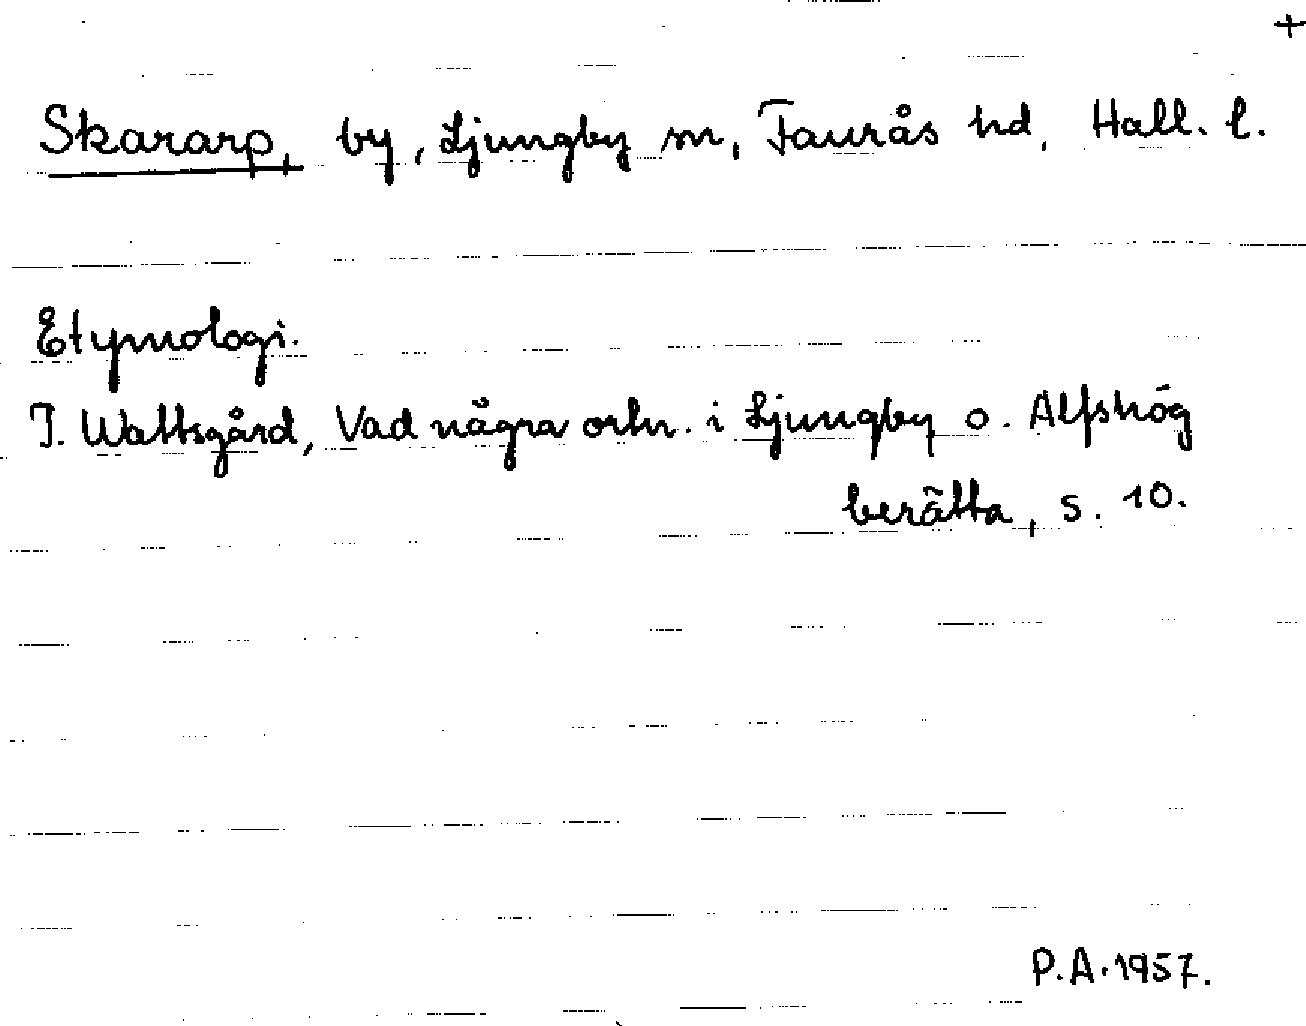 +
Skararp, by, Ljungby sn, Faurås hd, Hall. l.
Etymologi.
J. Wattsgård, Vad några ortn. i Ljungby o. Alfshög
berätta, s. 10.
P.A. 1957.